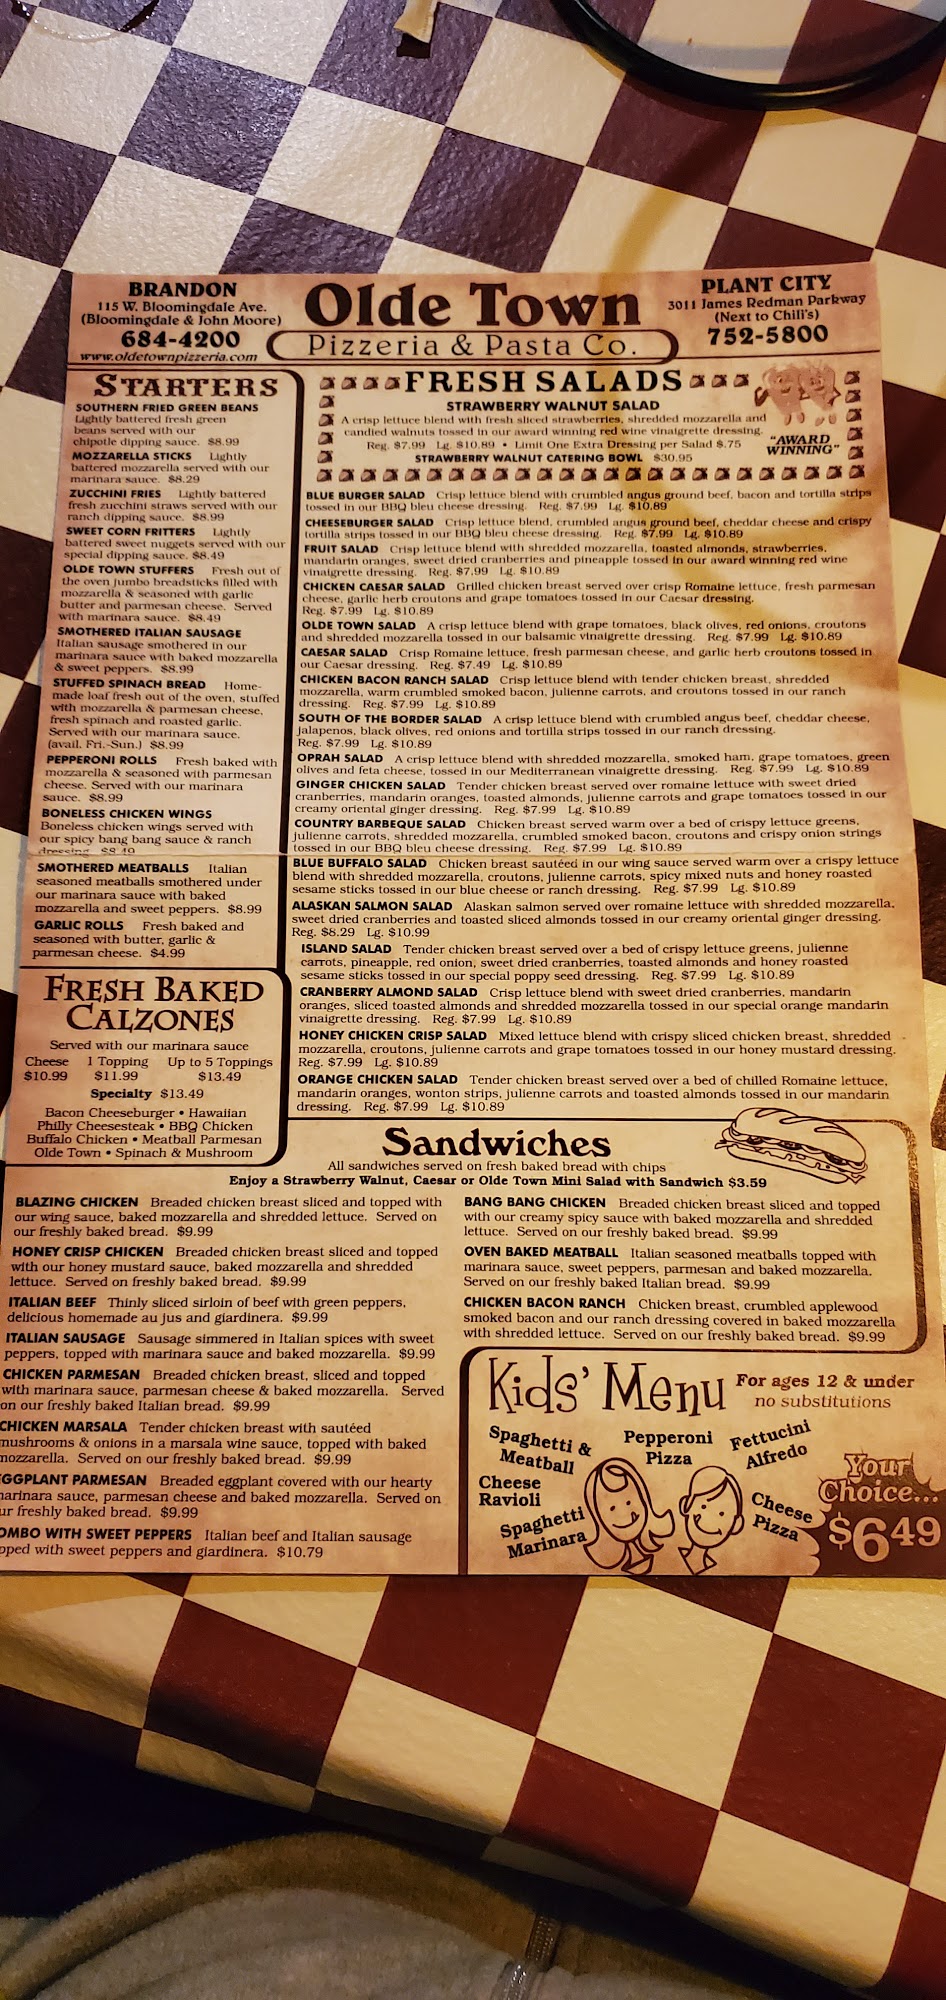 BRANDON
115 W. Bloomingdale Ave.
(Bloomingdale & John Moore)
684-4200
www.oldetownpizzeria.com
Olde Town
Pizzeria & Pasta Co.
PLANT CITY
3011 James Redman Parkway
(Next to Chili's)
752-5800
STARTERS
SOUTHERN FRIED GREEN BEANS
Lightly battered fresh green
beans served with our
chipotle dipping sauce. $8.99
MOZZARELLA STICKS Lightly
battered mozzarella served with our
marinara sauce. $8.29
ZUCCHINI FRIES Lightly battered
fresh zucchini straws served with our
ranch dipping sauce. $8.99
SWEET CORN FRITTERS Lightly
battered sweet nuggets served with our
special dipping sauce. $8.49
OLDE TOWN STUFFERS Fresh out of
the oven jumbo breadsticks filled with
mozzarella & seasoned with garlic
butter and parmesan cheese. Served
with marinara sauce. $8.49
SMOTHERED ITALIAN SAUSAGE
Italian sausage smothered in our
marinara sauce with baked mozzarella
& sweet peppers. $8.99
STUFFED SPINACH BREAD Home-
made loaf fresh out of the oven, stuffed
with mozzarella & parmesan cheese,
fresh spinach and roasted garlic.
Served with our marinara sauce.
(avail. Fri.-Sun.) $8.99
PEPPERONI ROLLS Fresh baked with
mozzarella & seasoned with parmesan
cheese. Served with our marinara
sauce. $8.99
BONELESS CHICKEN WINGS
Boneless chicken wings served with
our spicy bang bang sauce & ranch
dressing $8.49
SMOTHERED MEATBALLS Italian
seasoned meatballs smothered under
our marinara sauce with baked
mozzarella and sweet peppers. $8.99
GARLIC ROLLS Fresh baked and
seasoned with butter, garlic &
parmesan cheese. $4.99
FRESH BAKED
CALZONES
Served with our marinara sauce
Cheese 1 Topping Up to 5 Toppings
$10.99 $11.99 $13.49
Specialty $13.49
Bacon Cheeseburger • Hawaiian
Philly Cheesesteak • BBQ Chicken
Buffalo Chicken • Meatball Parmesan
Olde Town • Spinach & Mushroom
FRESH SALADS
STRAWBERRY WALNUT SALAD
A crisp lettuce blend with fresh sliced strawberries, shredded mozzarella and
candied walnuts tossed in our award winning red wine vinaigrette dressing.
Reg. $7.99 Lg. $10.89 • Limit One Extra Dressing per Salad $.75
STRAWBERRY WALNUT CATERING BOWL $30.95
"AWARD
WINNING"
BLUE BURGER SALAD Crisp lettuce blend with crumbled angus ground beef, bacon and tortilla strips
tossed in our BBQ bleu cheese dressing. Reg. $7.99 Lg. $10.89
CHEESEBURGER SALAD Crisp lettuce blend, crumbled angus ground beef, cheddar cheese and crispy
tortilla strips tossed in our BBQ bleu cheese dressing. Reg. $7.99 Lg. $10.89
FRUIT SALAD Crisp lettuce blend with shredded mozzarella, toasted almonds, strawberries,
mandarin oranges, sweet dried cranberries and pineapple tossed in our award winning red wine
vinaigrette dressing. Reg. $7.99 Lg. $10.89
CHICKEN CAESAR SALAD Grilled chicken breast served over crisp Romaine lettuce, fresh parmesan
cheese, garlic herb croutons and grape tomatoes tossed in our Caesar dressing.
Reg. $7.99 Lg. $10.89
OLDE TOWN SALAD A crisp lettuce blend with grape tomatoes, black olives, red onions, croutons
and shredded mozzarella tossed in our balsamic vinaigrette dressing. Reg. $7.99 Lg. $10.89
CAESAR SALAD Crisp Romaine lettuce, fresh parmesan cheese, and garlic herb croutons tossed in
our Caesar dressing. Reg. $7.49 Lg. $10.89
CHICKEN BACON RANCH SALAD Crisp lettuce blend with tender chicken breast, shredded
mozzarella, warm crumbled smoked bacon, julienne carrots, and croutons tossed in our ranch
dressing. Reg. $7.99 Lg. $10.89
SOUTH OF THE BORDER SALAD A crisp lettuce blend with crumbled angus beef, cheddar cheese,
jalapenos, black olives, red onions and tortilla strips tossed in our ranch dressing.
Reg. $7.99 Lg. $10.89
OPRAH SALAD A crisp lettuce blend with shredded mozzarella, smoked ham, grape tomatoes, green
olives and feta cheese, tossed in our Mediterranean vinaigrette dressing. Reg. $7.99 Lg. $10.89
GINGER CHICKEN SALAD Tender chicken breast served over romaine lettuce with sweet dried
cranberries, mandarin oranges, toasted almonds, julienne carrots and grape tomatoes tossed in our
creamy oriental ginger dressing. Reg. $7.99 Lg. $10.89
COUNTRY BARBEQUE SALAD Chicken breast served warm over a bed of crispy lettuce greens,
julienne carrots, shredded mozzarella, crumbled smoked bacon, croutons and crispy onion strings
tossed in our BBQ bleu cheese dressing. Reg. $7.99 Lg. $10.89
BLUE BUFFALO SALAD Chicken breast sautéed in our wing sauce served warm over a crispy lettuce
blend with shredded mozzarella, croutons, julienne carrots, spicy mixed nuts and honey roasted
sesame sticks tossed in our blue cheese or ranch dressing. Reg. $7.99 Lg. $10.89
ALASKAN SALMON SALAD Alaskan salmon served over romaine lettuce with shredded mozzarella,
sweet dried cranberries and toasted sliced almonds tossed in our creamy oriental ginger dressing.
Reg. $8.29 Lg. $10.99
ISLAND SALAD Tender chicken breast served over a bed of crispy lettuce greens, julienne
carrots, pineapple, red onion, sweet dried cranberries, toasted almonds and honey roasted
sesame sticks tossed in our special poppy seed dressing. Reg. $7.99 Lg. $10.89
CRANBERRY ALMOND SALAD Crisp lettuce blend with sweet dried cranberries, mandarin
oranges, sliced toasted almonds and shredded mozzarella tossed in our special orange mandarin
vinaigrette dressing. Reg. $7.99 Lg. $10.89
HONEY CHICKEN CRISP SALAD Mixed lettuce blend with crispy sliced chicken breast, shredded
mozzarella, croutons, julienne carrots and grape tomatoes tossed in our honey mustard dressing.
Reg. $7.99 Lg. $10.89
ORANGE CHICKEN SALAD Tender chicken breast served over a bed of chilled Romaine lettuce,
mandarin oranges, wonton strips, julienne carrots and toasted almonds tossed in our mandarin
dressing. Reg. $7.99 Lg. $10.89
Sandwiches
All sandwiches served on fresh baked bread with chips
Enjoy a Strawberry Walnut, Caesar or Olde Town Mini Salad with Sandwich $3.59
BLAZING CHICKEN Breaded chicken breast sliced and topped with
our wing sauce, baked mozzarella and shredded lettuce. Served on
our freshly baked bread. $9.99
HONEY CRISP CHICKEN Breaded chicken breast sliced and topped
with our honey mustard sauce, baked mozzarella and shredded
lettuce. Served on freshly baked bread. $9.99
ITALIAN BEEF Thinly sliced sirloin of beef with green peppers,
delicious homemade au jus and giardinera. $9.99
ITALIAN SAUSAGE Sausage simmered in Italian spices with sweet
peppers, topped with marinara sauce and baked mozzarella. $9.99
CHICKEN PARMESAN Breaded chicken breast, sliced and topped
with marinara sauce, parmesan cheese & baked mozzarella. Served
on our freshly baked Italian bread. $9.99
CHICKEN MARSALA Tender chicken breast with sautéed
mushrooms & onions in a marsala wine sauce, topped with baked
mozzarella. Served on our freshly baked bread. $9.99
EGGPLANT PARMESAN Breaded eggplant covered with our hearty
marinara sauce, parmesan cheese and baked mozzarella. Served on
our freshly baked bread. $9.99
OMBO WITH SWEET PEPPERS Italian beef and Italian sausage
pped with sweet peppers and giardinera. $10.79
BANG BANG CHICKEN Breaded chicken breast sliced and topped
with our creamy spicy sauce with baked mozzarella and shredded
lettuce. Served on our freshly baked bread. $9.99
OVEN BAKED MEATBALL Italian seasoned meatballs topped with
marinara sauce, sweet peppers, parmesan and baked mozzarella.
Served on our freshly baked Italian bread. $9.99
CHICKEN BACON RANCH Chicken breast, crumbled applewood
smoked bacon and our ranch dressing covered in baked mozzarella
with shredded lettuce. Served on our freshly baked bread. $9.99
Kids' Menu
For ages 12 & under
no substitutions
Spaghetti &
Meatball
Pepperoni
Pizza
Fettucini
Alfredo
Cheese
Ravioli
Spaghetti
Marinara
Cheese
Pizza
Your
Choice...
$6.49